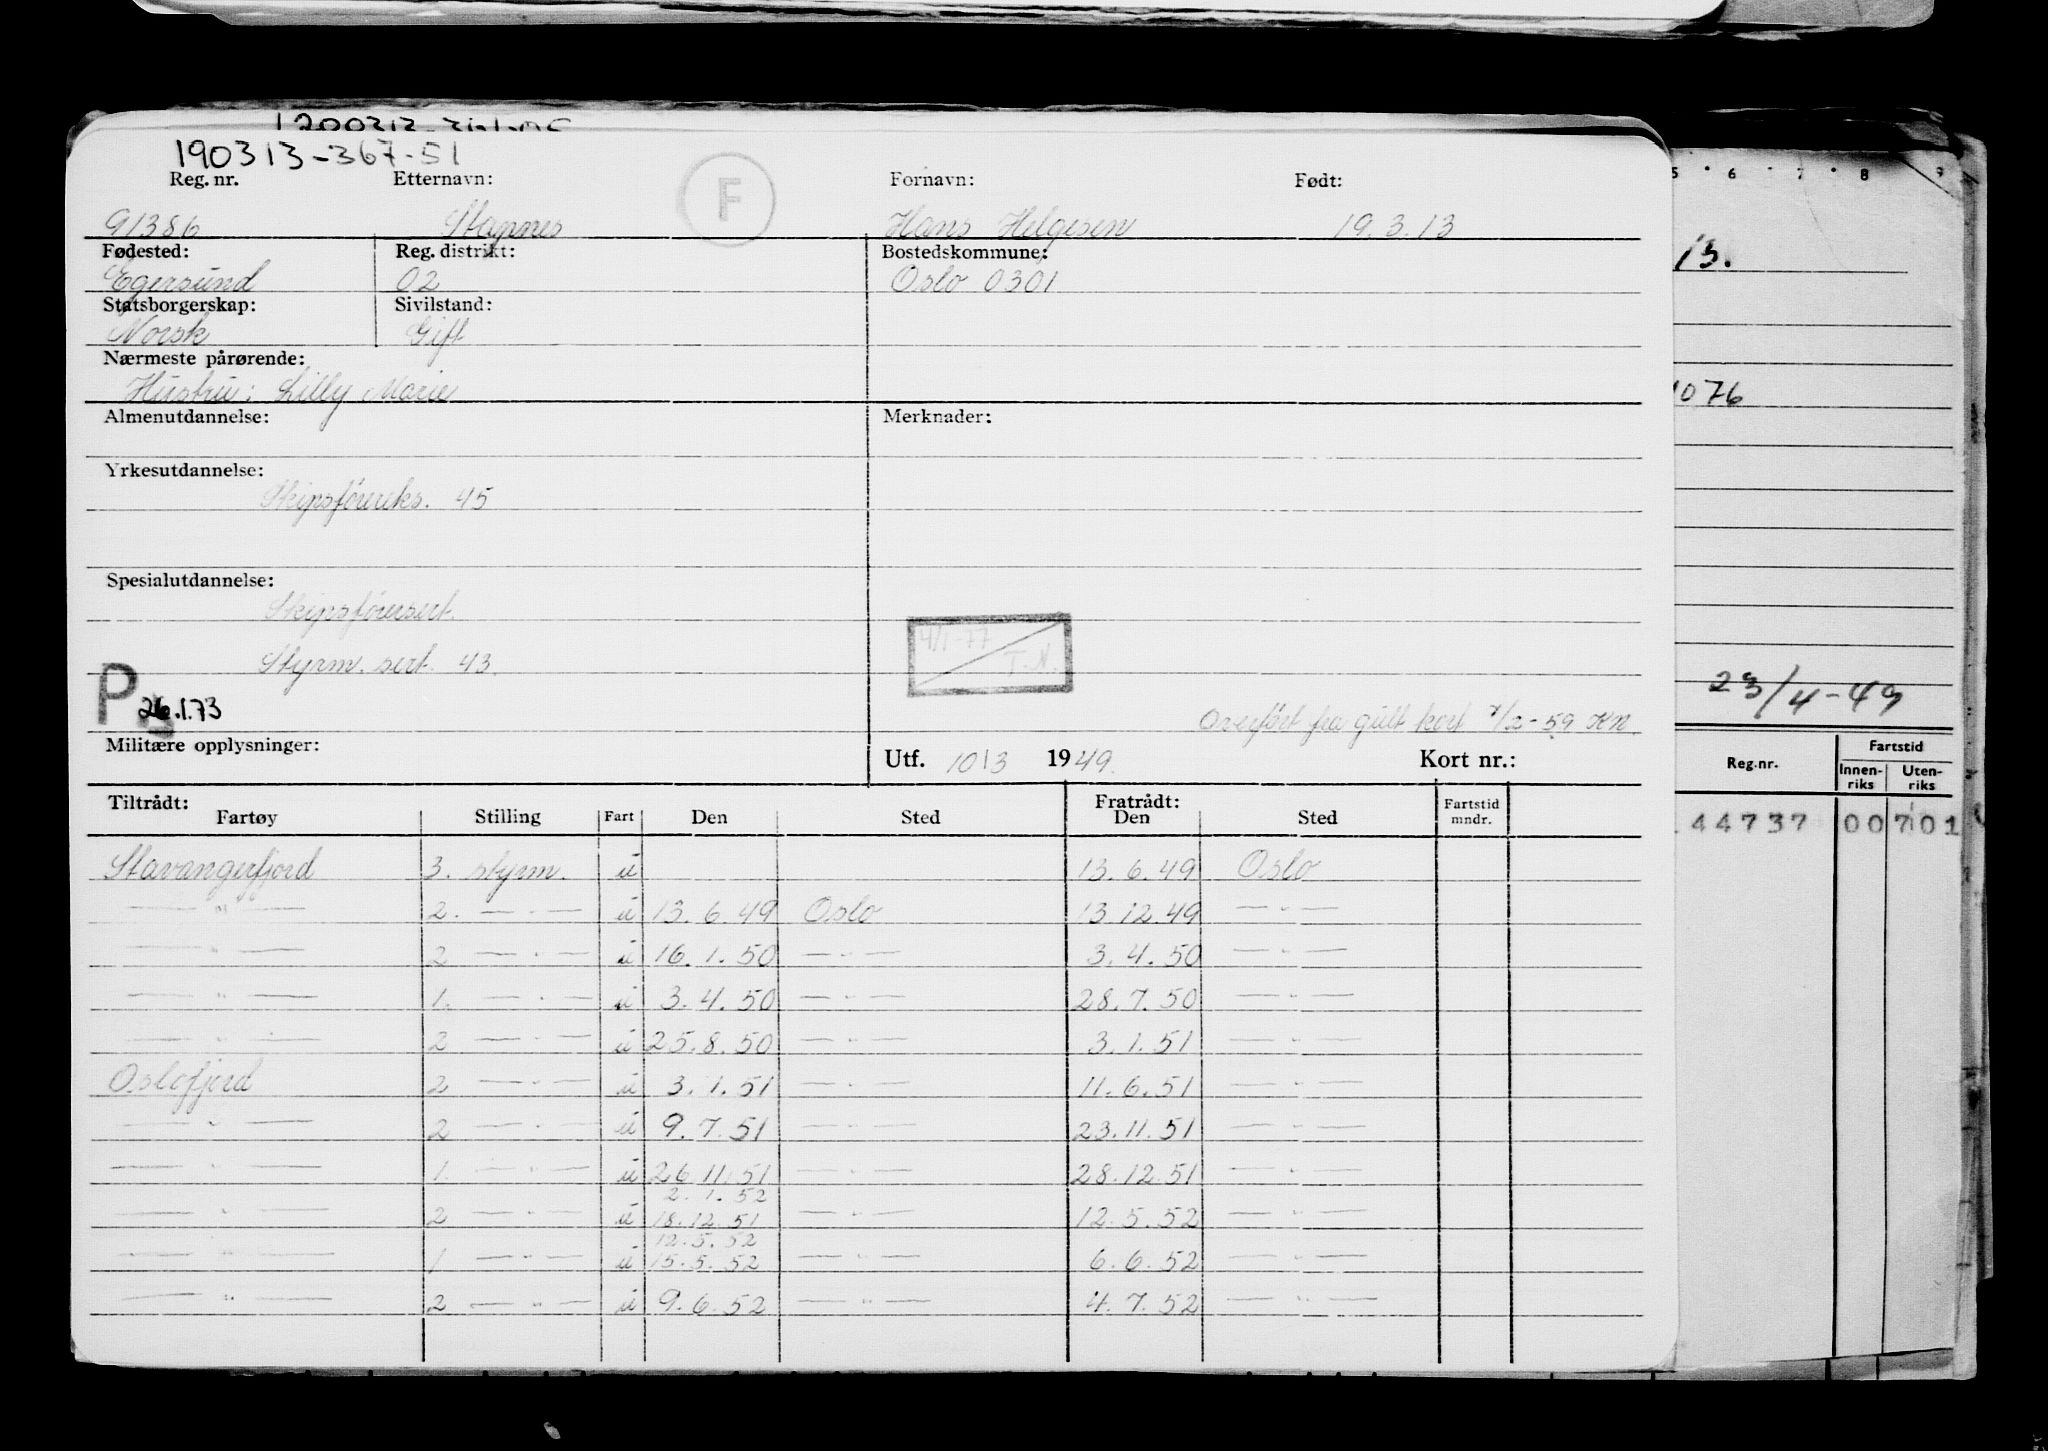 190313-367-51
Reg. nr. Etternavn: F Fornavn: Født:
91386 Stapnes Hans Helgesen 19.3.13
Fødested: Reg. distrikt: Bostedskommune:
Egersund 02 Oslo 0301
Statsborgerskap: Sivilstand:
Norsk Gift
Nærmeste pårørende:
Hustru: Lilly Marie
Almenutdannelse: Merknader:
Yrkesutdannelse:
Skipsføreeks. 45
Spesialutdannelse:
Skipsførersert.
4/1-77
T.N.
Styrm. sert. 43.
P
26.1.73
Overført fra gult kort 7/2-59 KN.
Militære opplysninger: Utf. 10/3 1949. Kort nr.:
Tiltrådt: Fratrådt:
Fartøy Stilling Fart Den Sted Den Sted Fartstid mndr.
Stavangerfjord 3. styrm. u 13.6.49 Oslo
— " — 2. — " — u 13.6.49 Oslo 13.12.49 — " —
— " — 2 — " — u 16.1.50 — " — 3.4.50 — " —
— " — 1. — " — u 3.4.50 — " — 28.7.50 — " —
— " — 2 — " — u 25.8.50 — " — 3.1.51 — " —
Oslofjord 2 — " — u 3.1.51 — " — 11.6.51 — " —
— " — 2 — " — u 9.7.51 — " — 23.11.51 — " —
— " — 1. — " — u 26.11.51 — " — 28.12.51 — " —
2.1.52
— " — 2 — " — u 18.12.51 — " — 12.5.52 — " —
12.5.52
— " — 1 — " — u 15.5.52 — " — 6.6.52 — " —
— " — 2 — " — u 9.6.52 — " — 4.7.52 — " —
5 6 7 8 9
13.
1076
23/4-49
Reg.nr. Fartstid
Innenriks Utenriks
44737 00 701